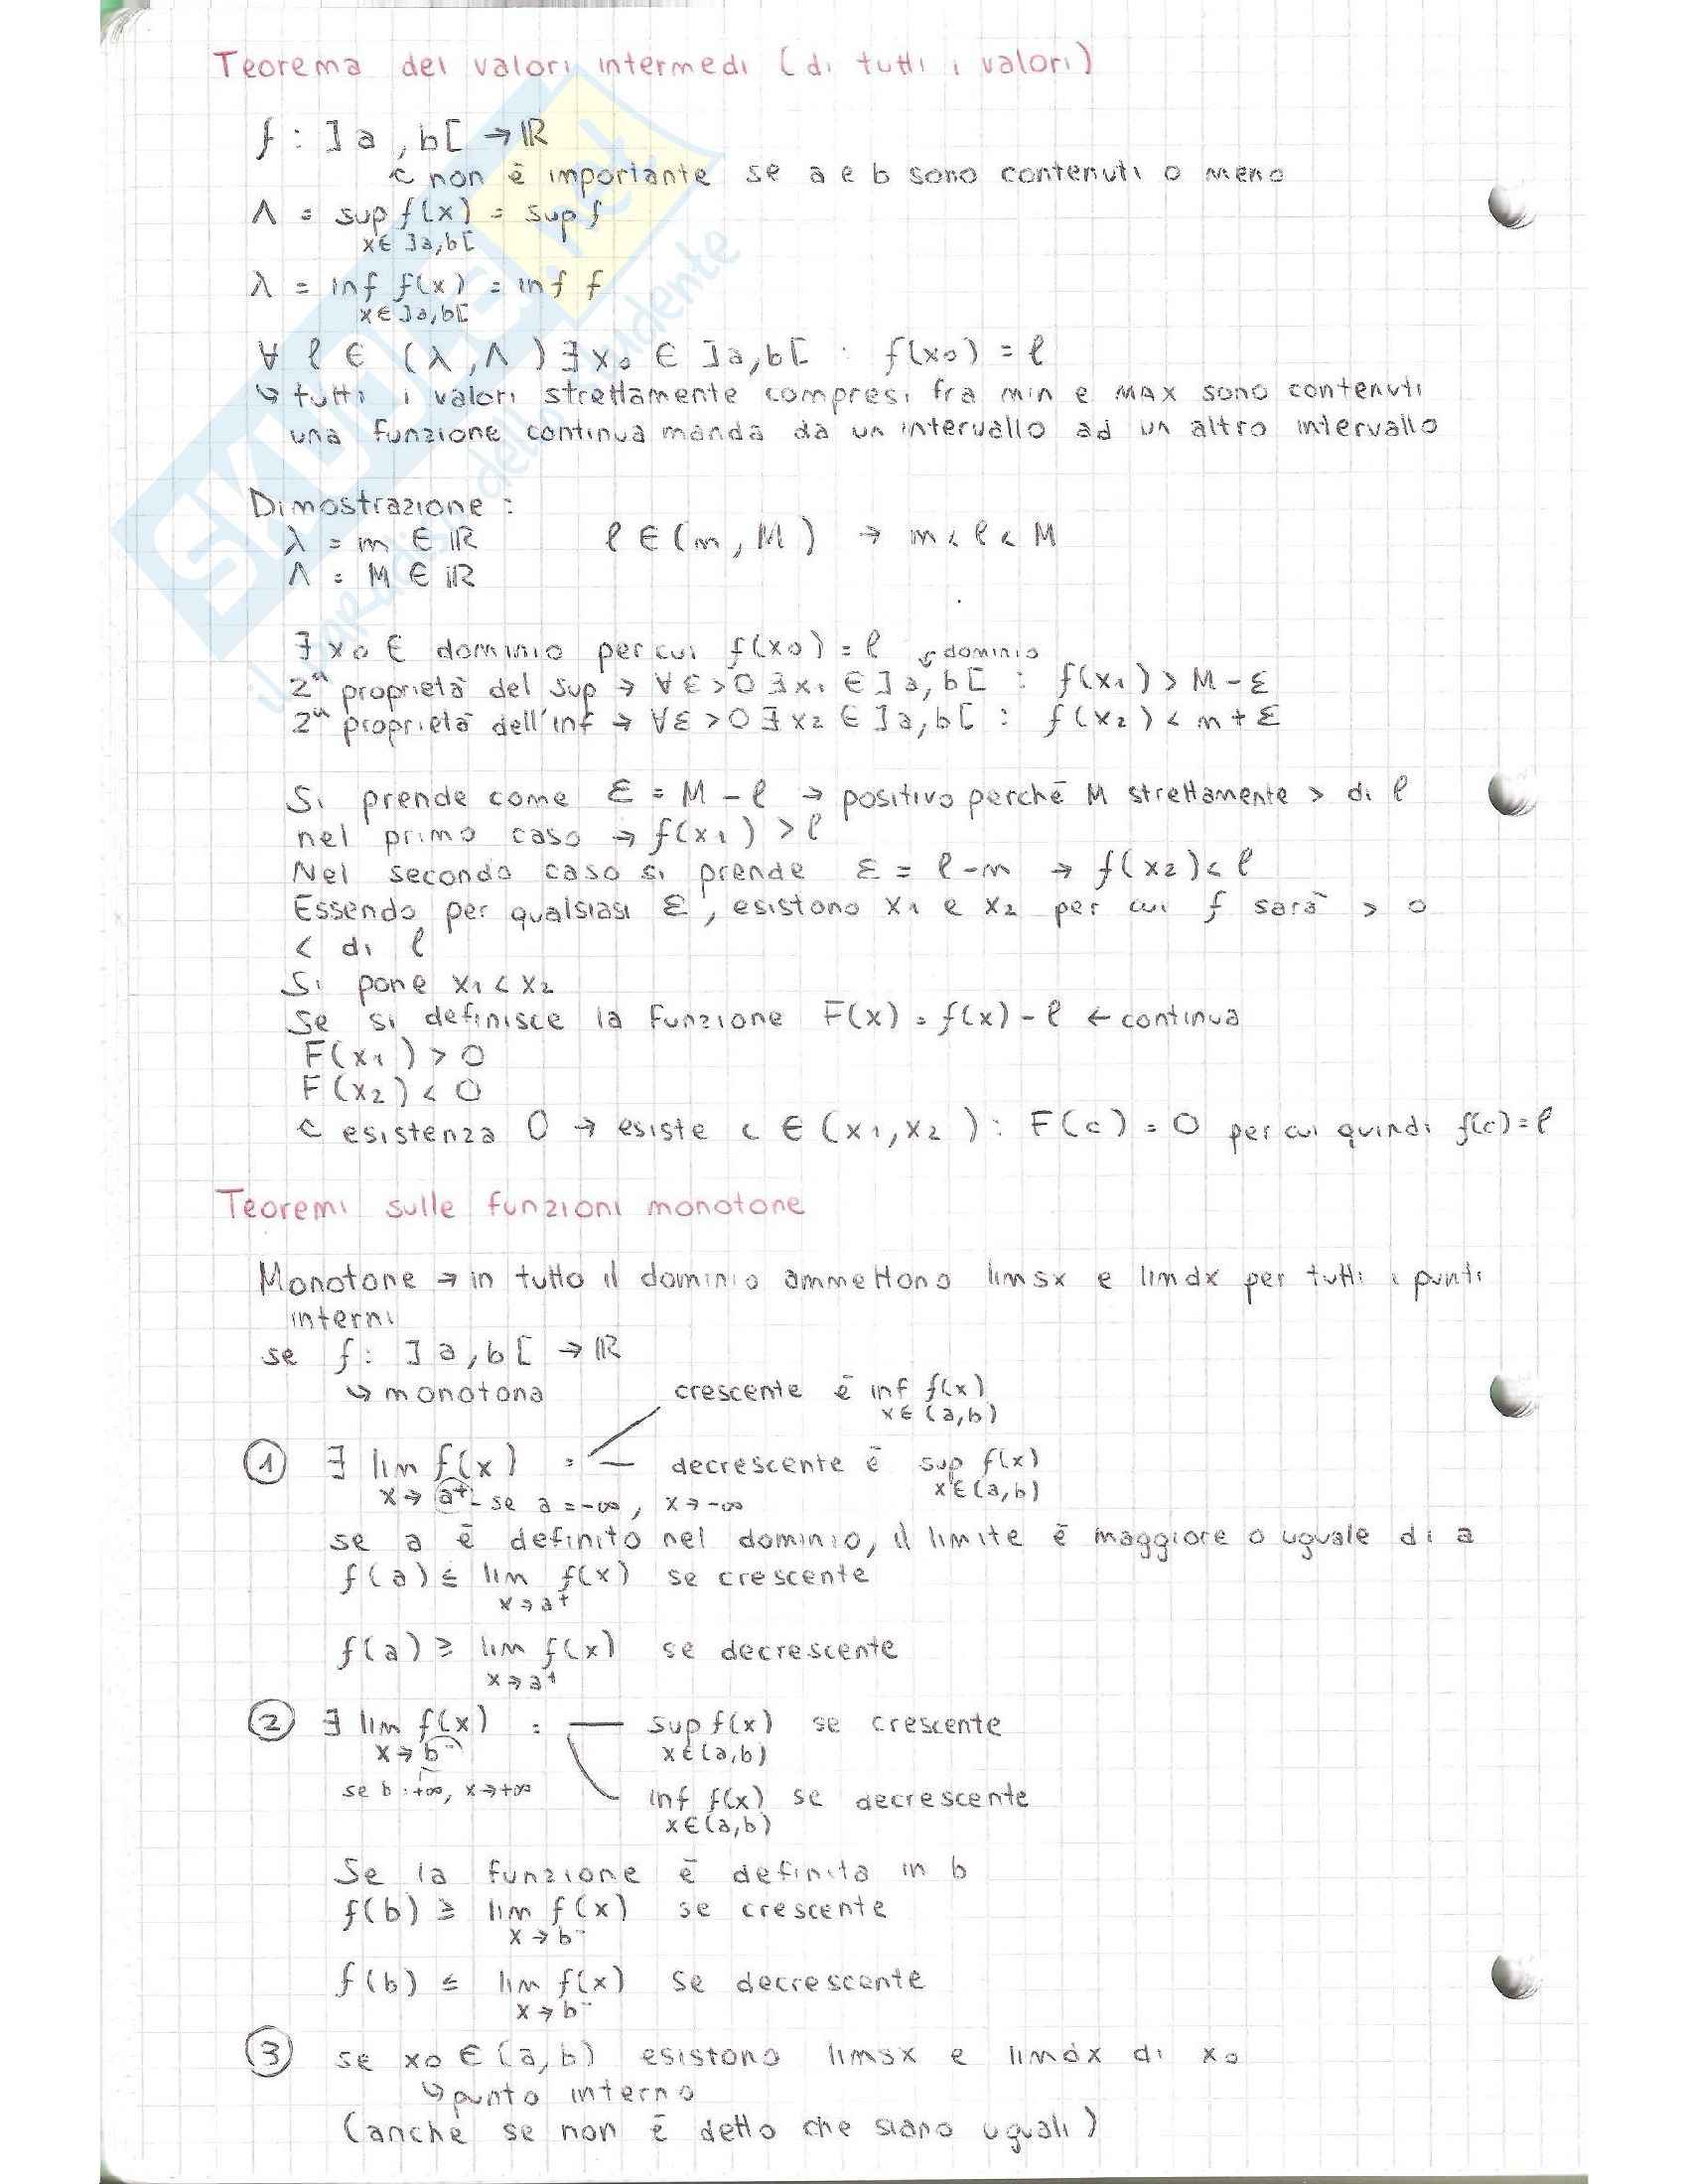 Teorema dei valori intermedi (di tutti i valori)
f : ]a,b[ → ℝ
↳ non è importante se a e b sono contenuti o meno
Λ = sup f(x) = sup f
x∈ ]a,b[
λ = inf f(x) = inf f
x∈]a,b[
∀ ℓ ∈ (λ,Λ) ∃ x₀ ∈ ]a,b[ : f(x₀) = ℓ
↳ tutti i valori strettamente compresi fra min e MAX sono contenuti
una funzione continua manda da un intervallo ad un altro intervallo
Dimostrazione :
λ = m ∈ ℝ ℓ ∈ (m, M) → m < ℓ < M
Λ = M ∈ ℝ
∃ x₀ ∈ dominio per cui f(x₀) = ℓ ↙ dominio
2ª proprietà del sup → ∀ε>0 ∃x₁ ∈ ]a,b[ : f(x₁) > M-ε
2ª proprietà dell'inf → ∀ε>0 ∃x₂ ∈ ]a,b[ : f(x₂) < m+ε
Si prende come ε = M-ℓ → positivo perché M strettamente > di ℓ
nel primo caso → f(x₁) > ℓ
Nel secondo caso si prende ε = ℓ-m → f(x₂) < ℓ
Essendo per qualsiasi ε, esistono x₁ e x₂ per cui f sarà > o
< di ℓ
Si pone x₁ < x₂
Se si definisce la funzione F(x) = f(x) - ℓ ← continua
F(x₁) > 0
F(x₂) < 0
↳ esistenza 0 → esiste c ∈ (x₁,x₂) : F(c) = 0 per cui quindi f(c) = ℓ
Teoremi sulle funzioni monotone
Monotone → in tutto il dominio ammettono limsx e limdx per tutti i punti
interni
se f: ]a,b[ → ℝ
↳ monotona crescente è inf f(x)
x∈(a,b)
① ∃ lim f(x) = — decrescente è sup f(x)
x→a⁺ - se a = -∞, x→-∞ x∈(a,b)
se a è definito nel dominio, il limite è maggiore o uguale di a
f(a) ≤ lim f(x) se crescente
x→a⁺
f(a) ≥ lim f(x) se decrescente
x→a⁺
② ∃ lim f(x) = — sup f(x) se crescente
x→b⁻ x∈(a,b)
se b=+∞, x→+∞ inf f(x) se decrescente
x∈(a,b)
Se la funzione è definita in b
f(b) ≥ lim f(x) se crescente
x→b⁻
f(b) ≤ lim f(x) se decrescente
x→b⁻
③ se x₀ ∈ (a,b) esistono limsx e limdx di x₀
↳ punto interno
(anche se non è detto che siano uguali)